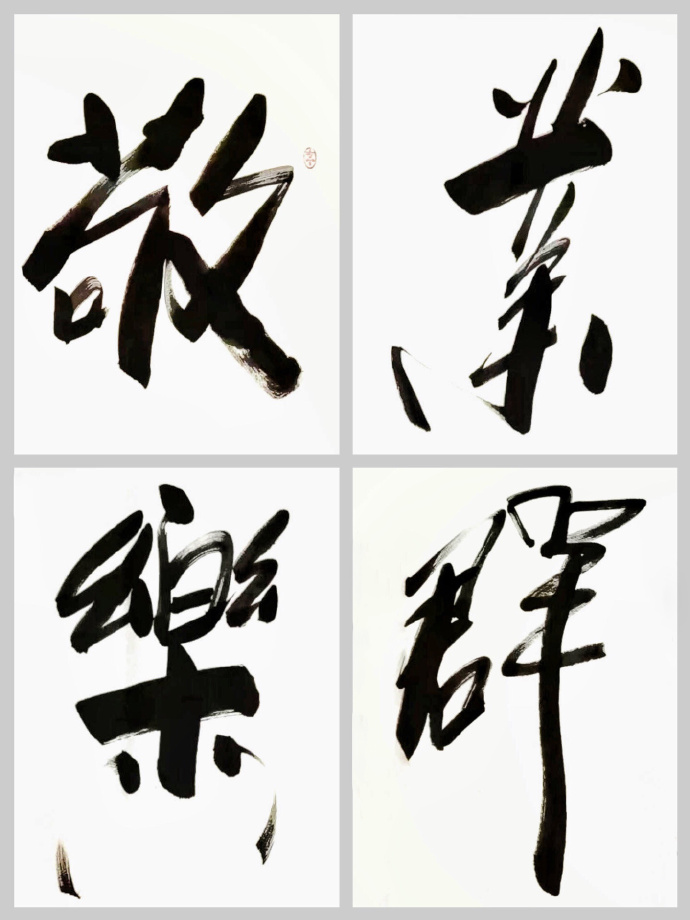 敬業
樂群